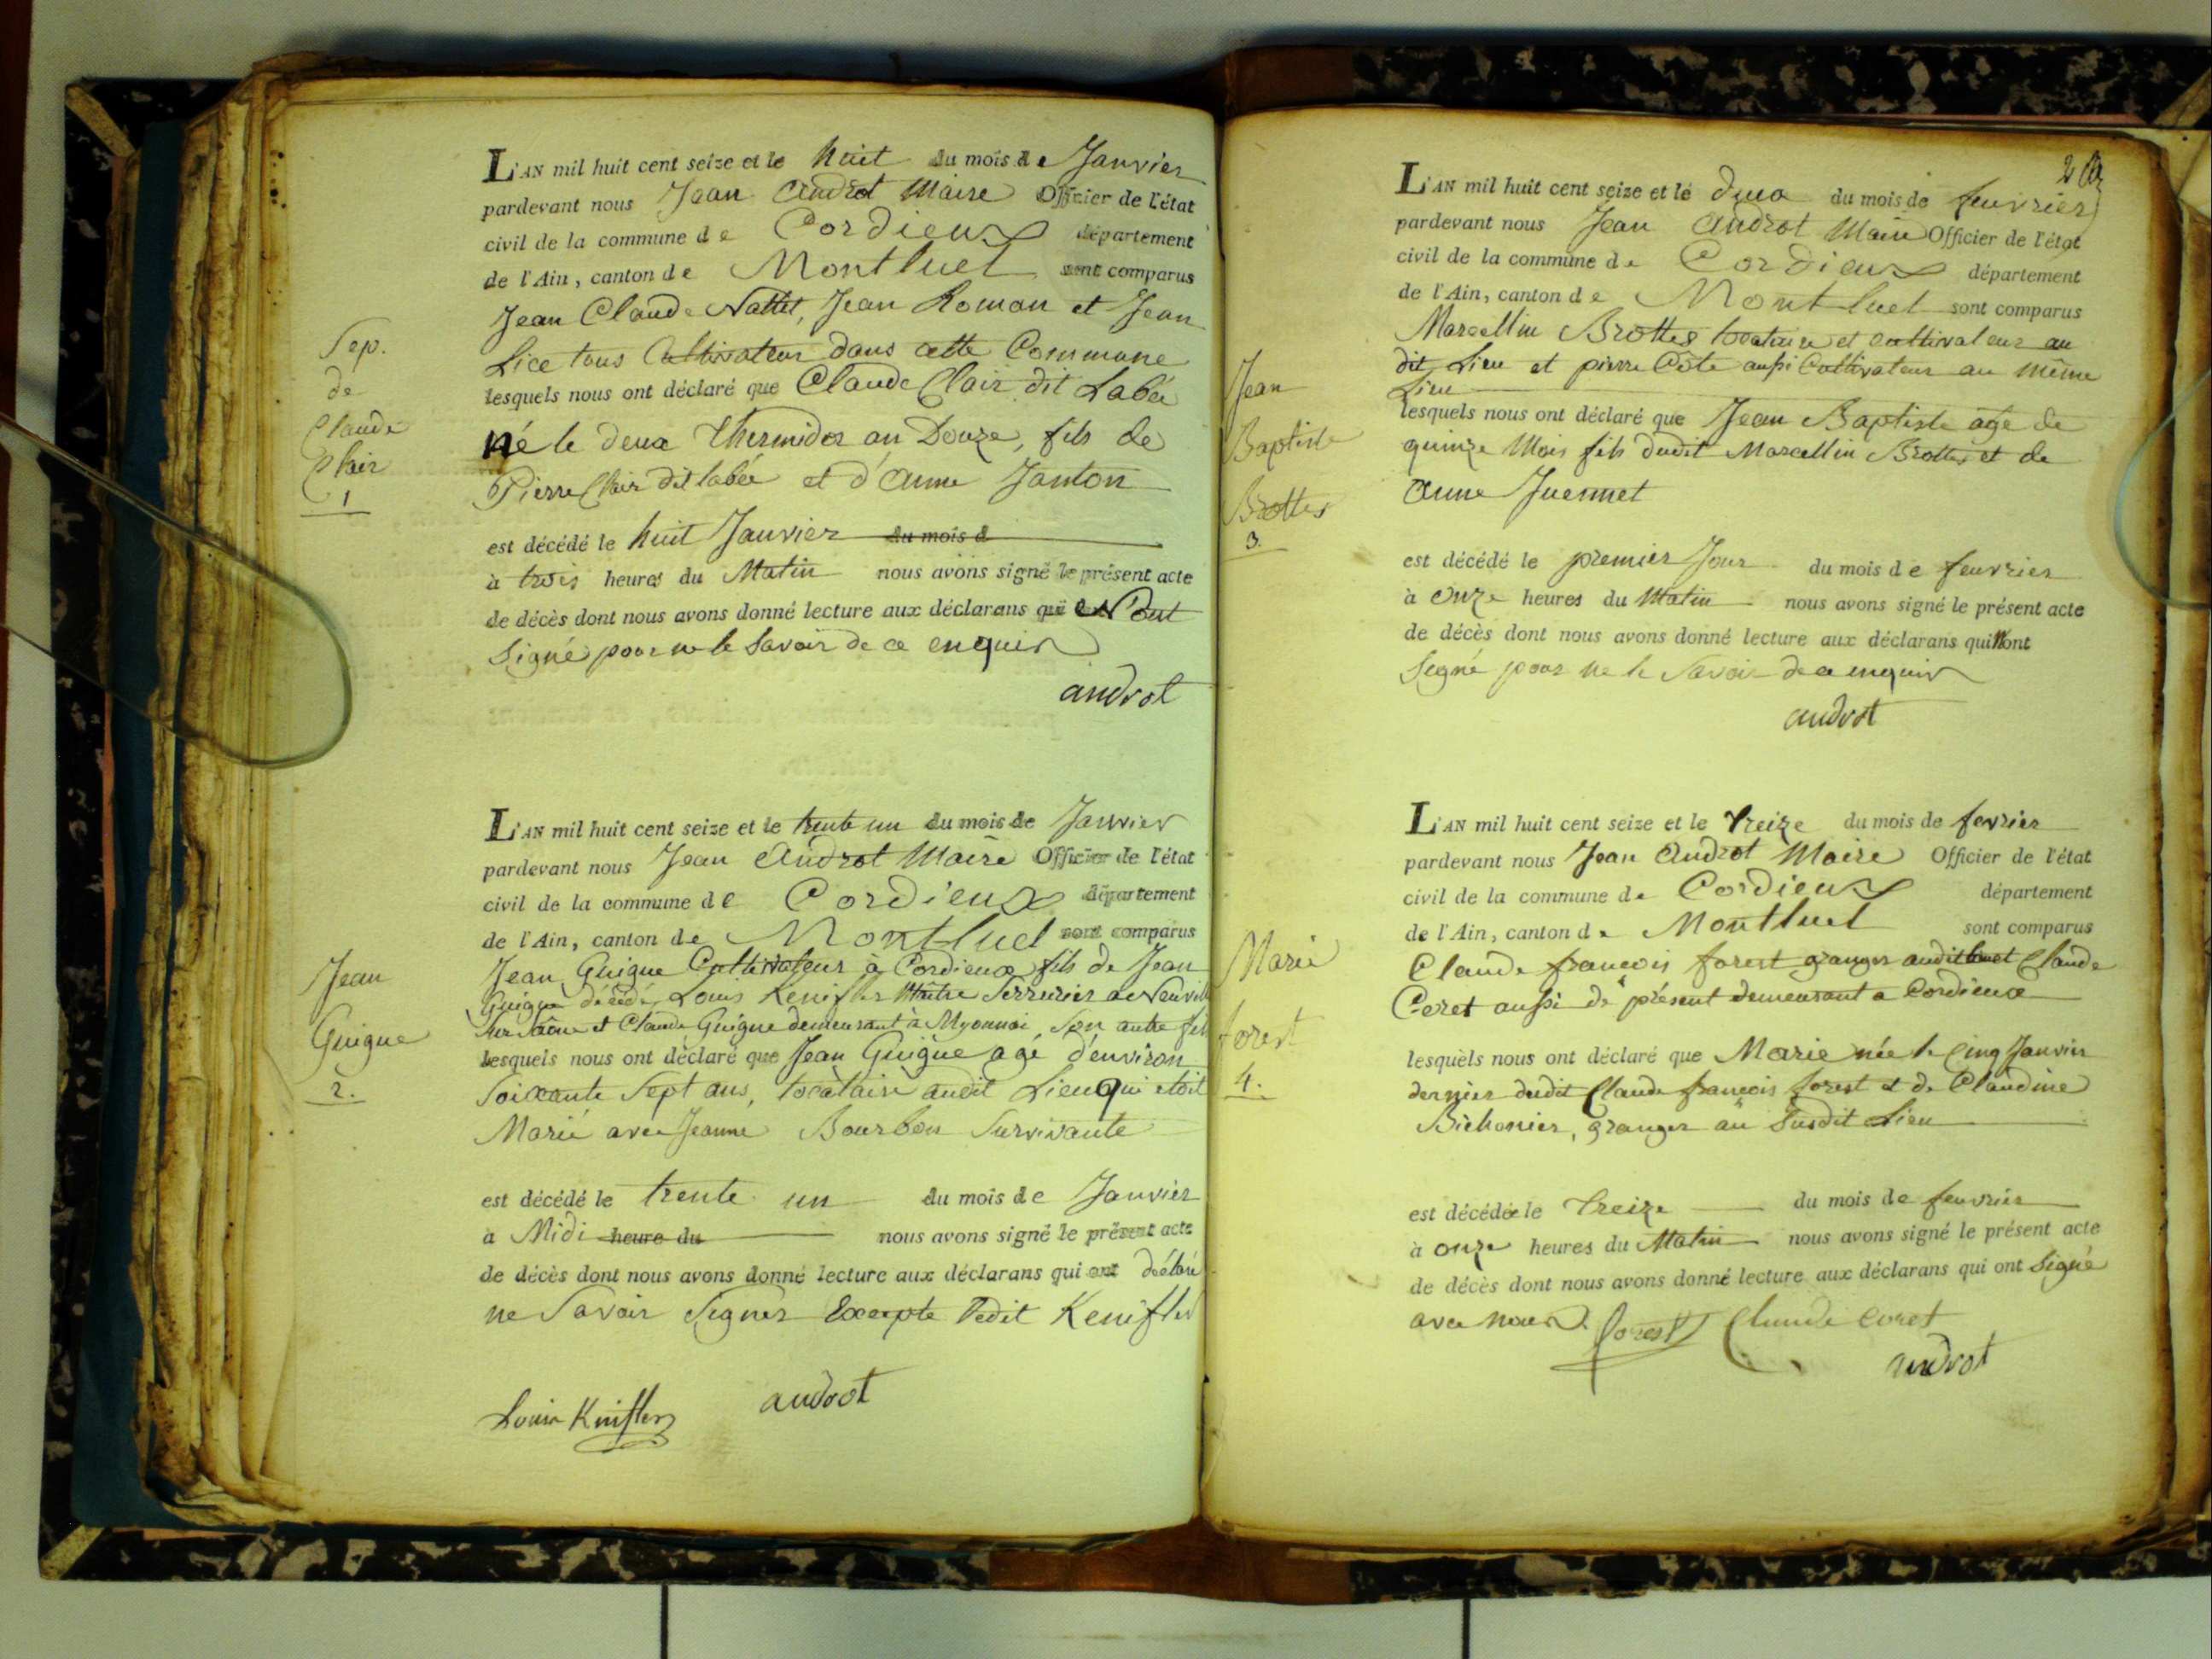 Sep.
de
Claude
Clair
1
L'AN mil huit cent seize et le huit du mois de Janvier
pardevant nous Jean Androt Maire Officier de l'état
civil de la commune de Cordieux département
de l'Ain, canton de Montluel sont comparus
Jean Claude Nattet, Jean Roman et Jean
Lice tous Cultivateur dans cette Commune
lesquels nous ont déclaré que Claude Clair dit Labée
né le deux thermidor an Douze, fils de
Pierre Clair dit labée et d'anne Janton
est décédé le huit Janvier du mois d
à trois heures du Matin nous avons signé le présent acte
de décès dont nous avons donné lecture aux déclarans qui
Signé pour ne le Savoir de ce enquis
androt
Jean
Guigue
2.
L'AN mil huit cent seize et le trente un du mois de Janvier
pardevant nous Jean Androt Maire Officier de l'état
civil de la commune de Cordieux département
de l'Ain, canton de Montluel sont comparus
Jean Guigue Cultivateur à Cordieux fils de Jean
Guigue décédé, Louis Kenifler Maître Serrurier a Neuville
Sur Saône et Claude Guigue demeurant à Myonnai, Son autre fils
lesquels nous ont déclaré que Jean Guigue agé d'environ
Soixante Sept ans, locataire audit Lieu qui etoit
Marié avec Jeanne Bourbon Survivante
est décédé le trente un du mois de Janvier
à Midi heure du nous avons signé le présent acte
de décès dont nous avons donné lecture aux déclarans qui ont déclaré
ne Savoir Signer Excepte ledit Kenifler
Louis Knifler androt
2
Jean
Baptiste
Brottes
3.
L'AN mil huit cent seize et le deux du mois de feuvrier
pardevant nous Jean Androt Maire Officier de l'état
civil de la commune de Cordieux département
de l'Ain, canton de Montluel sont comparus
Marcellin Brottes locataire et cultivateur au
dit Lieu et pierre Côte aussi Cultivateur au même
Lieu
lesquels nous ont déclaré que Jean Baptiste age de
quinze Mois fils dudit Marcellin Brottes et de
Anne Juennet
est décédé le premier Jour du mois de feuvrier
à onze heures du Matin nous avons signé le présent acte
de décès dont nous avons donné lecture aux déclarans qui Nont
Signé pour ne le Savoir de ce enquis
androt
Marie
forest
4.
L'AN mil huit cent seize et le treize du mois de fevrier
pardevant nous Jean Androt Maire Officier de l'état
civil de la commune de Cordieux département
de l'Ain, canton de Montluel sont comparus
Claude francois forest granger audit lieu et Claude
Coret aussi de présent demeurant a Cordieux
lesquels nous ont déclaré que Marie née le Cinq Janvier
dernier dudit Claude francois forest et de Claudine
Bichonier, granger au Susdit Lieu
est décédée le treize du mois de feuvrier
à onze heures du Matin nous avons signé le présent acte
de décès dont nous avons donné lecture aux déclarans qui ont Signé
avec nous. forest Claude Coret
androt